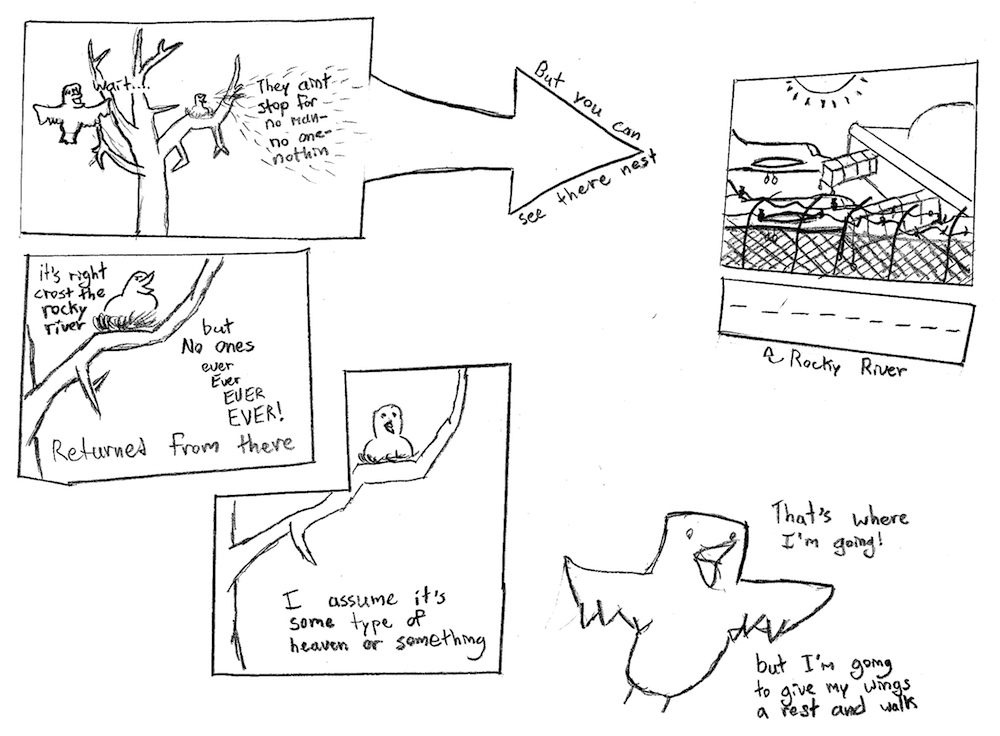 Wait....
They aint
stop for
no man-
no one-
nothin
But you can
see there nest
Rocky River
it's right
crost the
rocky
river
but
No ones
ever
Ever
EVER
EVER!
Returned from there
I assume it's
some type of
heaven or something
That's where
I'm going!
but I'm going
to give my wings
a rest and walk